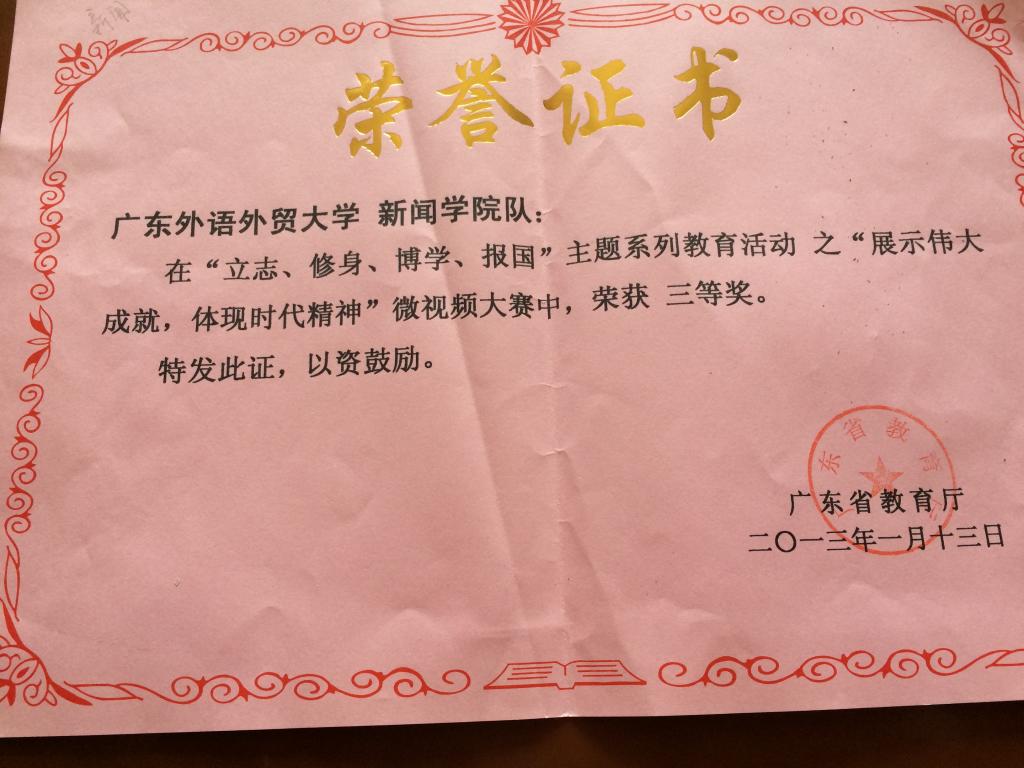 新闻
荣誉证书
广东外语外贸大学 新闻学院队：
在“立志、修身、博学、报国”主题系列教育活动 之“展示伟大
成就，体现时代精神”微视频大赛中，荣获 三等奖。
特发此证，以资鼓励。
东省教育
广东省教育厅
二〇一三年一月十三日